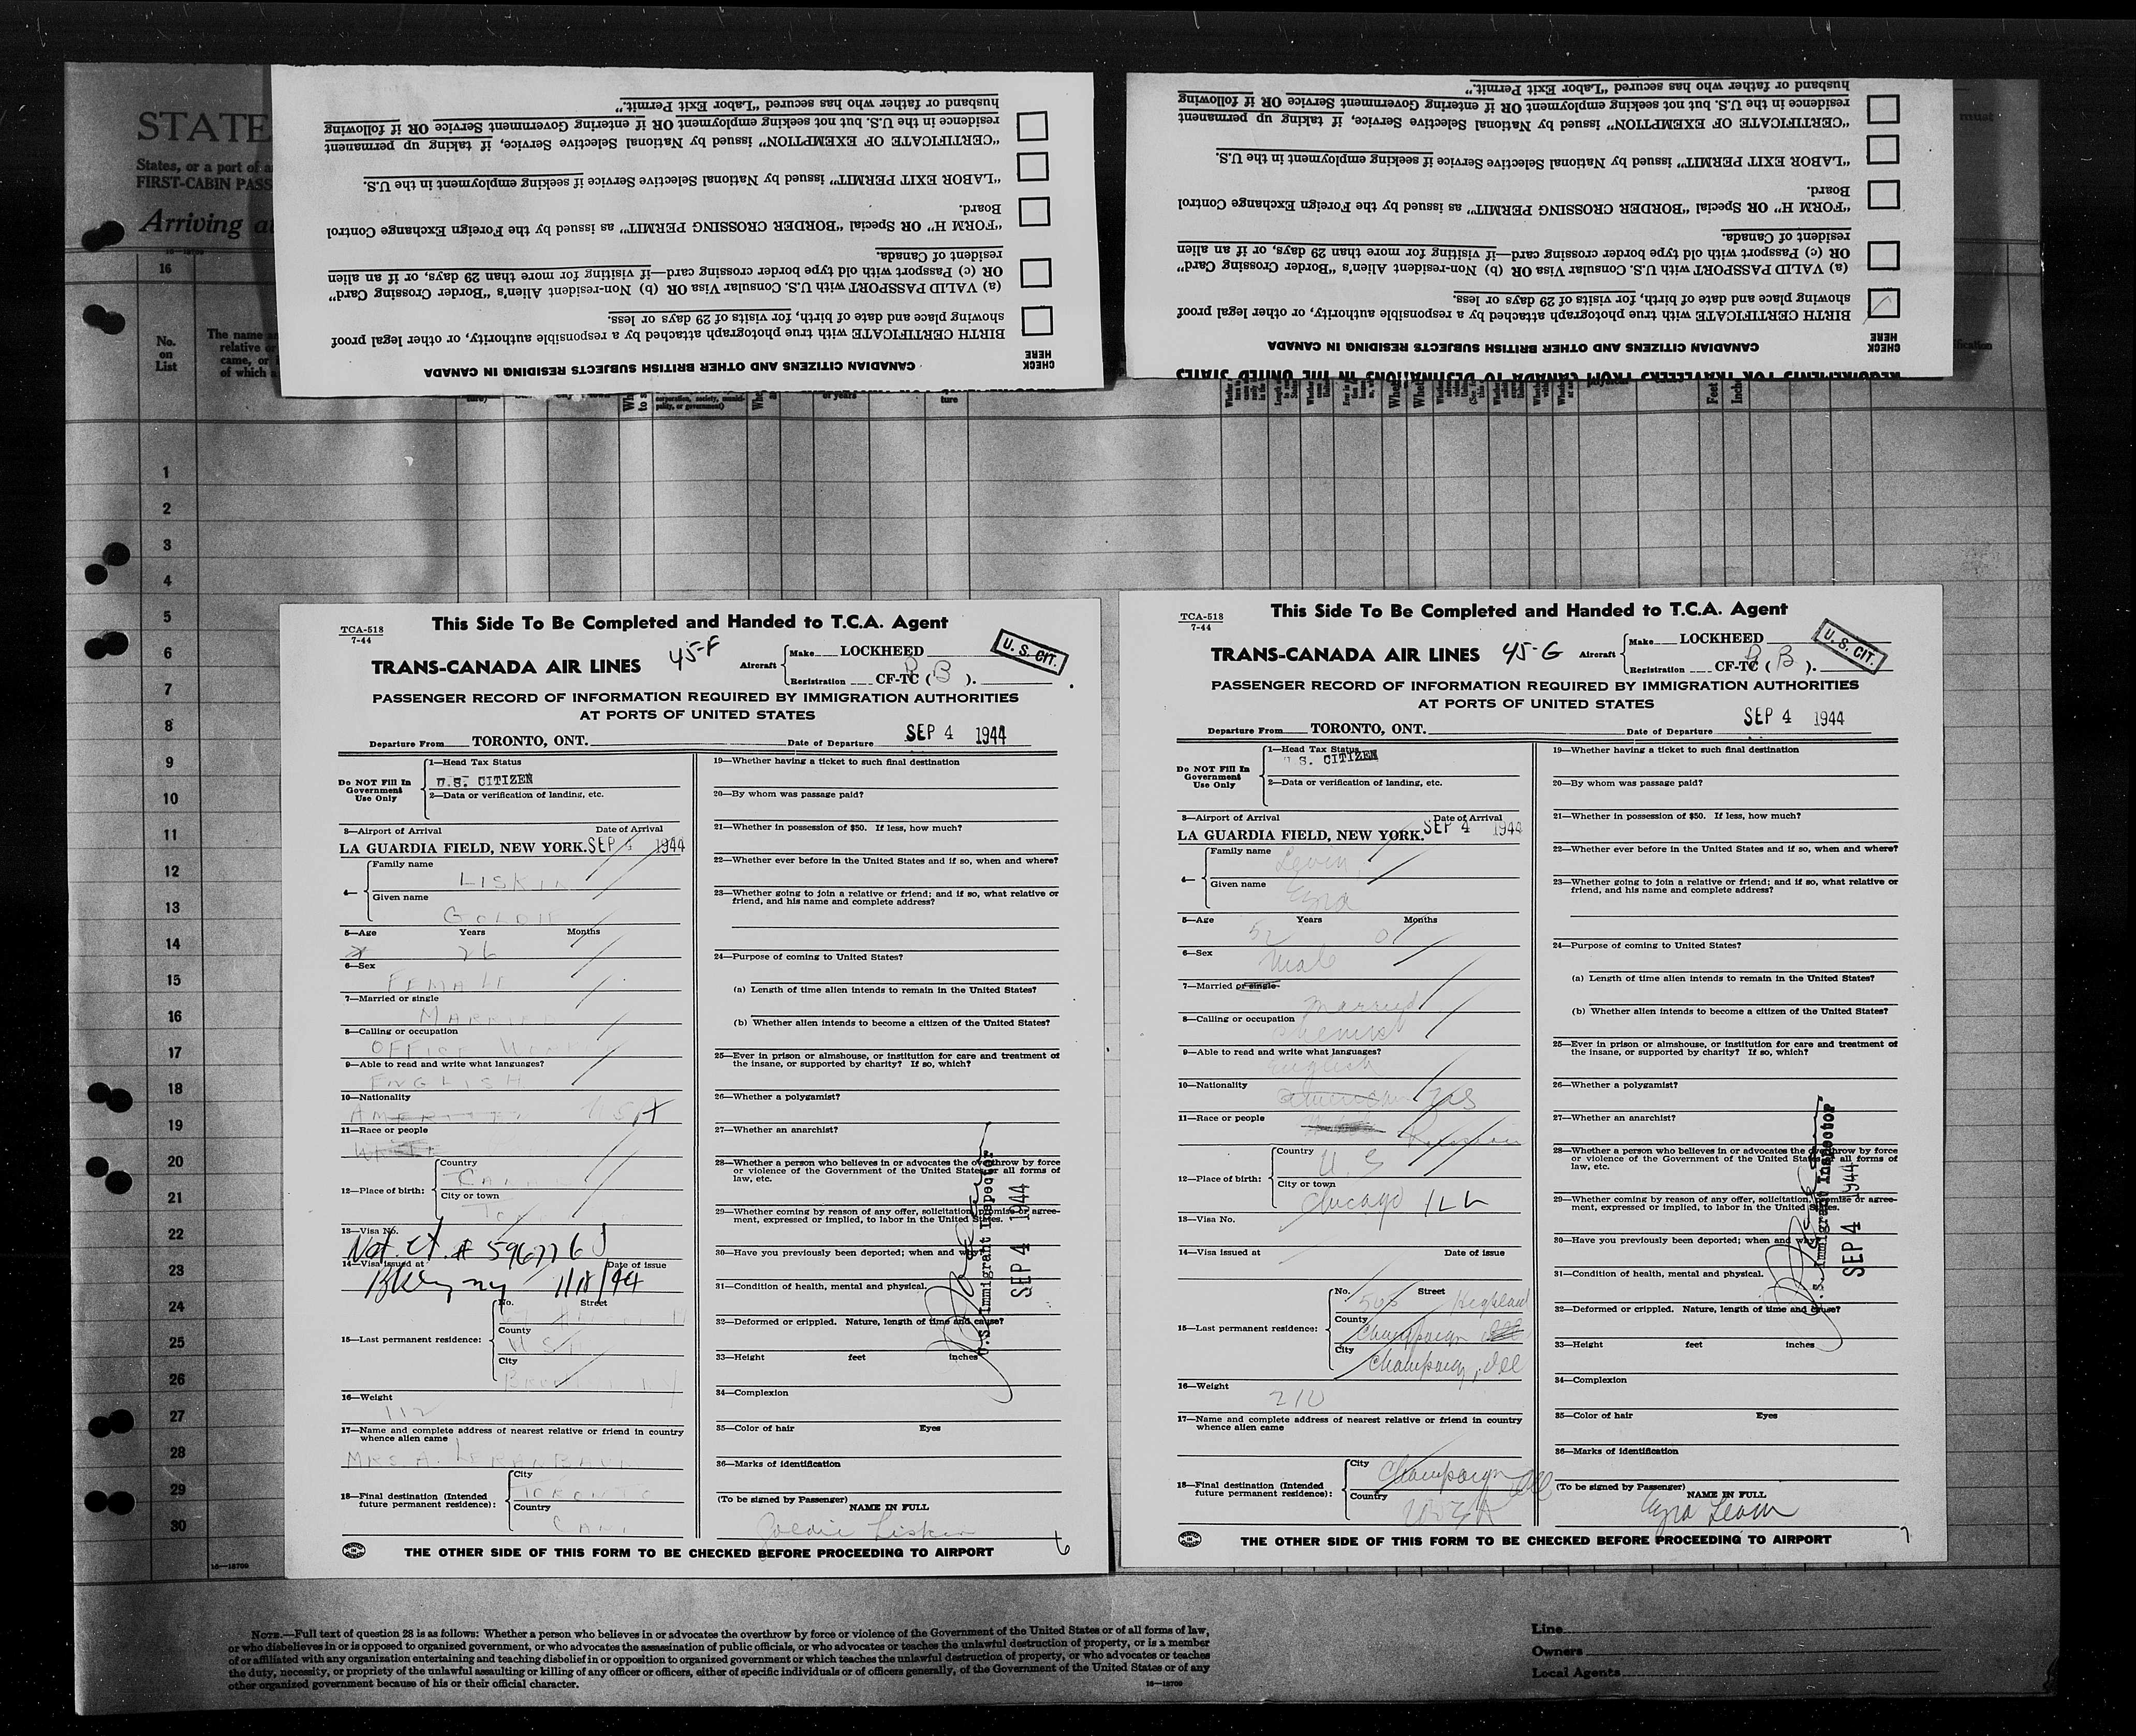 STATE
States, or a port of a
FIRST-CABIN PASS
Arriving at
16
No.
on
List
The name
relative or
came, or
of which a
husband or father who has secured "Labor Exit Permit."
residence in the U.S. but not seeking employment OR if entering Government Service OR if following
"CERTIFICATE OF EXEMPTION" issued by National Selective Service, if taking up permanent
"LABOR EXIT PERMIT" issued by National Selective Service if seeking employment in the U.S.
Board.
"FORM H" OR Special "BORDER CROSSING PERMIT" as issued by the Foreign Exchange Control
resident of Canada.
OR (c) Passport with old type border crossing card—if visiting for more than 29 days, or if an alien
(a) VALID PASSPORT with U.S. Consular Visa OR (b) Non-resident Alien's "Border Crossing Card"
showing place and date of birth, for visits of 29 days or less.
BIRTH CERTIFICATE with true photograph attached by a responsible authority, or other legal proof
CHECK HERE
CANADIAN CITIZENS AND OTHER BRITISH SUBJECTS RESIDING IN CANADA
husband or father who has secured "Labor Exit Permit."
residence in the U.S. but not seeking employment OR if entering Government Service OR if following
"CERTIFICATE OF EXEMPTION" issued by National Selective Service, if taking up permanent
"LABOR EXIT PERMIT" issued by National Selective Service if seeking employment in the U.S.
Board.
"FORM H" OR Special "BORDER CROSSING PERMIT" as issued by the Foreign Exchange Control
resident of Canada.
OR (c) Passport with old type border crossing card—if visiting for more than 29 days, or if an alien
(a) VALID PASSPORT with U.S. Consular Visa OR (b) Non-resident Alien's "Border Crossing Card"
showing place and date of birth, for visits of 29 days or less.
BIRTH CERTIFICATE with true photograph attached by a responsible authority, or other legal proof
CHECK HERE
CANADIAN CITIZENS AND OTHER BRITISH SUBJECTS RESIDING IN CANADA
REQUIREMENTS FOR TRAVELLERS FROM CANADA TO DESTINATIONS IN THE UNITED STATES
must
1
2
3
4
5
6
7
8
9
10
11
12
13
14
15
16
17
18
19
20
21
22
23
24
25
26
27
28
29
30
16—18709
TCA-518
7-44
This Side To Be Completed and Handed to T.C.A. Agent
TRANS-CANADA AIR LINES 45-F
Aircraft
Make LOCKHEED
Registration CF-TC ( B ).
U. S. CIT.
PASSENGER RECORD OF INFORMATION REQUIRED BY IMMIGRATION AUTHORITIES
AT PORTS OF UNITED STATES
Departure From TORONTO, ONT. Date of Departure SEP 4 1944
Do NOT Fill In
Government
Use Only
1—Head Tax Status
U.S. CITIZEN
2—Data or verification of landing, etc.
3—Airport of Arrival Date of Arrival
LA GUARDIA FIELD, NEW YORK. SEP 4 1944
4—
Family name
LISKIN
Given name
GOLDIE
5—Age Years Months
26
6—Sex
FEMALE
7—Married or single
MARRIED
8—Calling or occupation
OFFICE
9—Able to read and write what languages?
ENGLISH
10—Nationality
USA
11—Race or people
WHITE
12—Place of birth:
Country
City or town
13—Visa No.
Nat. Ct. # 5967763
14—Visa issued at Date of issue
Bklyn ny 1/18/44
15—Last permanent residence:
No. Street
County
USA
City
16—Weight
112
17—Name and complete address of nearest relative or friend in country
whence alien came
MRS A.
18—Final destination (Intended
future permanent residence):
City
TORONTO
Country
CAN.
19—Whether having a ticket to such final destination
20—By whom was passage paid?
21—Whether in possession of $50. If less, how much?
22—Whether ever before in the United States and if so, when and where?
23—Whether going to join a relative or friend; and if so, what relative or
friend, and his name and complete address?
24—Purpose of coming to United States?
(a) Length of time alien intends to remain in the United States?
(b) Whether alien intends to become a citizen of the United States?
25—Ever in prison or almshouse, or institution for care and treatment of
the insane, or supported by charity? If so, which?
26—Whether a polygamist?
27—Whether an anarchist?
28—Whether a person who believes in or advocates the overthrow by force
or violence of the Government of the United States or all forms of
law, etc.
29—Whether coming by reason of any offer, solicitation, promise or agree-
ment, expressed or implied, to labor in the United States.
30—Have you previously been deported; when and why?
31—Condition of health, mental and physical.
32—Deformed or crippled. Nature, length of time and cause?
33—Height feet inches
34—Complexion
35—Color of hair Eyes
36—Marks of identification
(To be signed by Passenger)
NAME IN FULL
Goldie Liskin
U.S. Immigrant Inspector
SEP 4 1944
THE OTHER SIDE OF THIS FORM TO BE CHECKED BEFORE PROCEEDING TO AIRPORT
6
TCA-518
7-44
This Side To Be Completed and Handed to T.C.A. Agent
TRANS-CANADA AIR LINES 45-G
Aircraft
Make LOCKHEED
Registration CF-TC ( B ).
U. S. CIT.
PASSENGER RECORD OF INFORMATION REQUIRED BY IMMIGRATION AUTHORITIES
AT PORTS OF UNITED STATES
Departure From TORONTO, ONT. Date of Departure SEP 4 1944
Do NOT Fill In
Government
Use Only
1—Head Tax Status
U.S. CITIZEN
2—Data or verification of landing, etc.
3—Airport of Arrival Date of Arrival
LA GUARDIA FIELD, NEW YORK. SEP 4 1944
4—
Family name
Levin,
Given name
Ezra
5—Age Years Months
52 0
6—Sex
Male
7—Married or single
Married
8—Calling or occupation
Chemist
9—Able to read and write what languages?
English
10—Nationality
American US
11—Race or people
Russian
12—Place of birth:
Country
U. S
City or town
Chicago ILL
13—Visa No.
14—Visa issued at Date of issue
15—Last permanent residence:
No. Street
505 Highland
County
Champaign
City
Champaign, Ill
16—Weight
210
17—Name and complete address of nearest relative or friend in country
whence alien came
18—Final destination (Intended
future permanent residence):
City
Champaign Ill
Country
USA
19—Whether having a ticket to such final destination
20—By whom was passage paid?
21—Whether in possession of $50. If less, how much?
22—Whether ever before in the United States and if so, when and where?
23—Whether going to join a relative or friend; and if so, what relative or
friend, and his name and complete address?
24—Purpose of coming to United States?
(a) Length of time alien intends to remain in the United States?
(b) Whether alien intends to become a citizen of the United States?
25—Ever in prison or almshouse, or institution for care and treatment of
the insane, or supported by charity? If so, which?
26—Whether a polygamist?
27—Whether an anarchist?
28—Whether a person who believes in or advocates the overthrow by force
or violence of the Government of the United States or all forms of
law, etc.
29—Whether coming by reason of any offer, solicitation, promise or agree-
ment, expressed or implied, to labor in the United States.
30—Have you previously been deported; when and why?
31—Condition of health, mental and physical.
32—Deformed or crippled. Nature, length of time and cause?
33—Height feet inches
34—Complexion
35—Color of hair Eyes
36—Marks of identification
(To be signed by Passenger)
NAME IN FULL
Ezra Levin
U.S. Immigrant Inspector
SEP 4 1944
THE OTHER SIDE OF THIS FORM TO BE CHECKED BEFORE PROCEEDING TO AIRPORT
7
NOTE.—Full text of question 28 is as follows: Whether a person who believes in or advocates the overthrow by force or violence of the Government of the United States or of all forms of law,
or who disbelieves in or is opposed to organized government, or who advocates the assassination of public officials, or who advocates or teaches the unlawful destruction of property, or is a member
of or affiliated with any organization entertaining and teaching disbelief in or opposition to organized government or which teaches the unlawful destruction of property, or who advocates or teaches
the duty, necessity, or propriety of the unlawful assaulting or killing of any officer or officers, either of specific individuals or of officers generally, of the Government of the United States or of any
other organized government because of his or their official character.
16—18709
Line
Owners
Local Agents